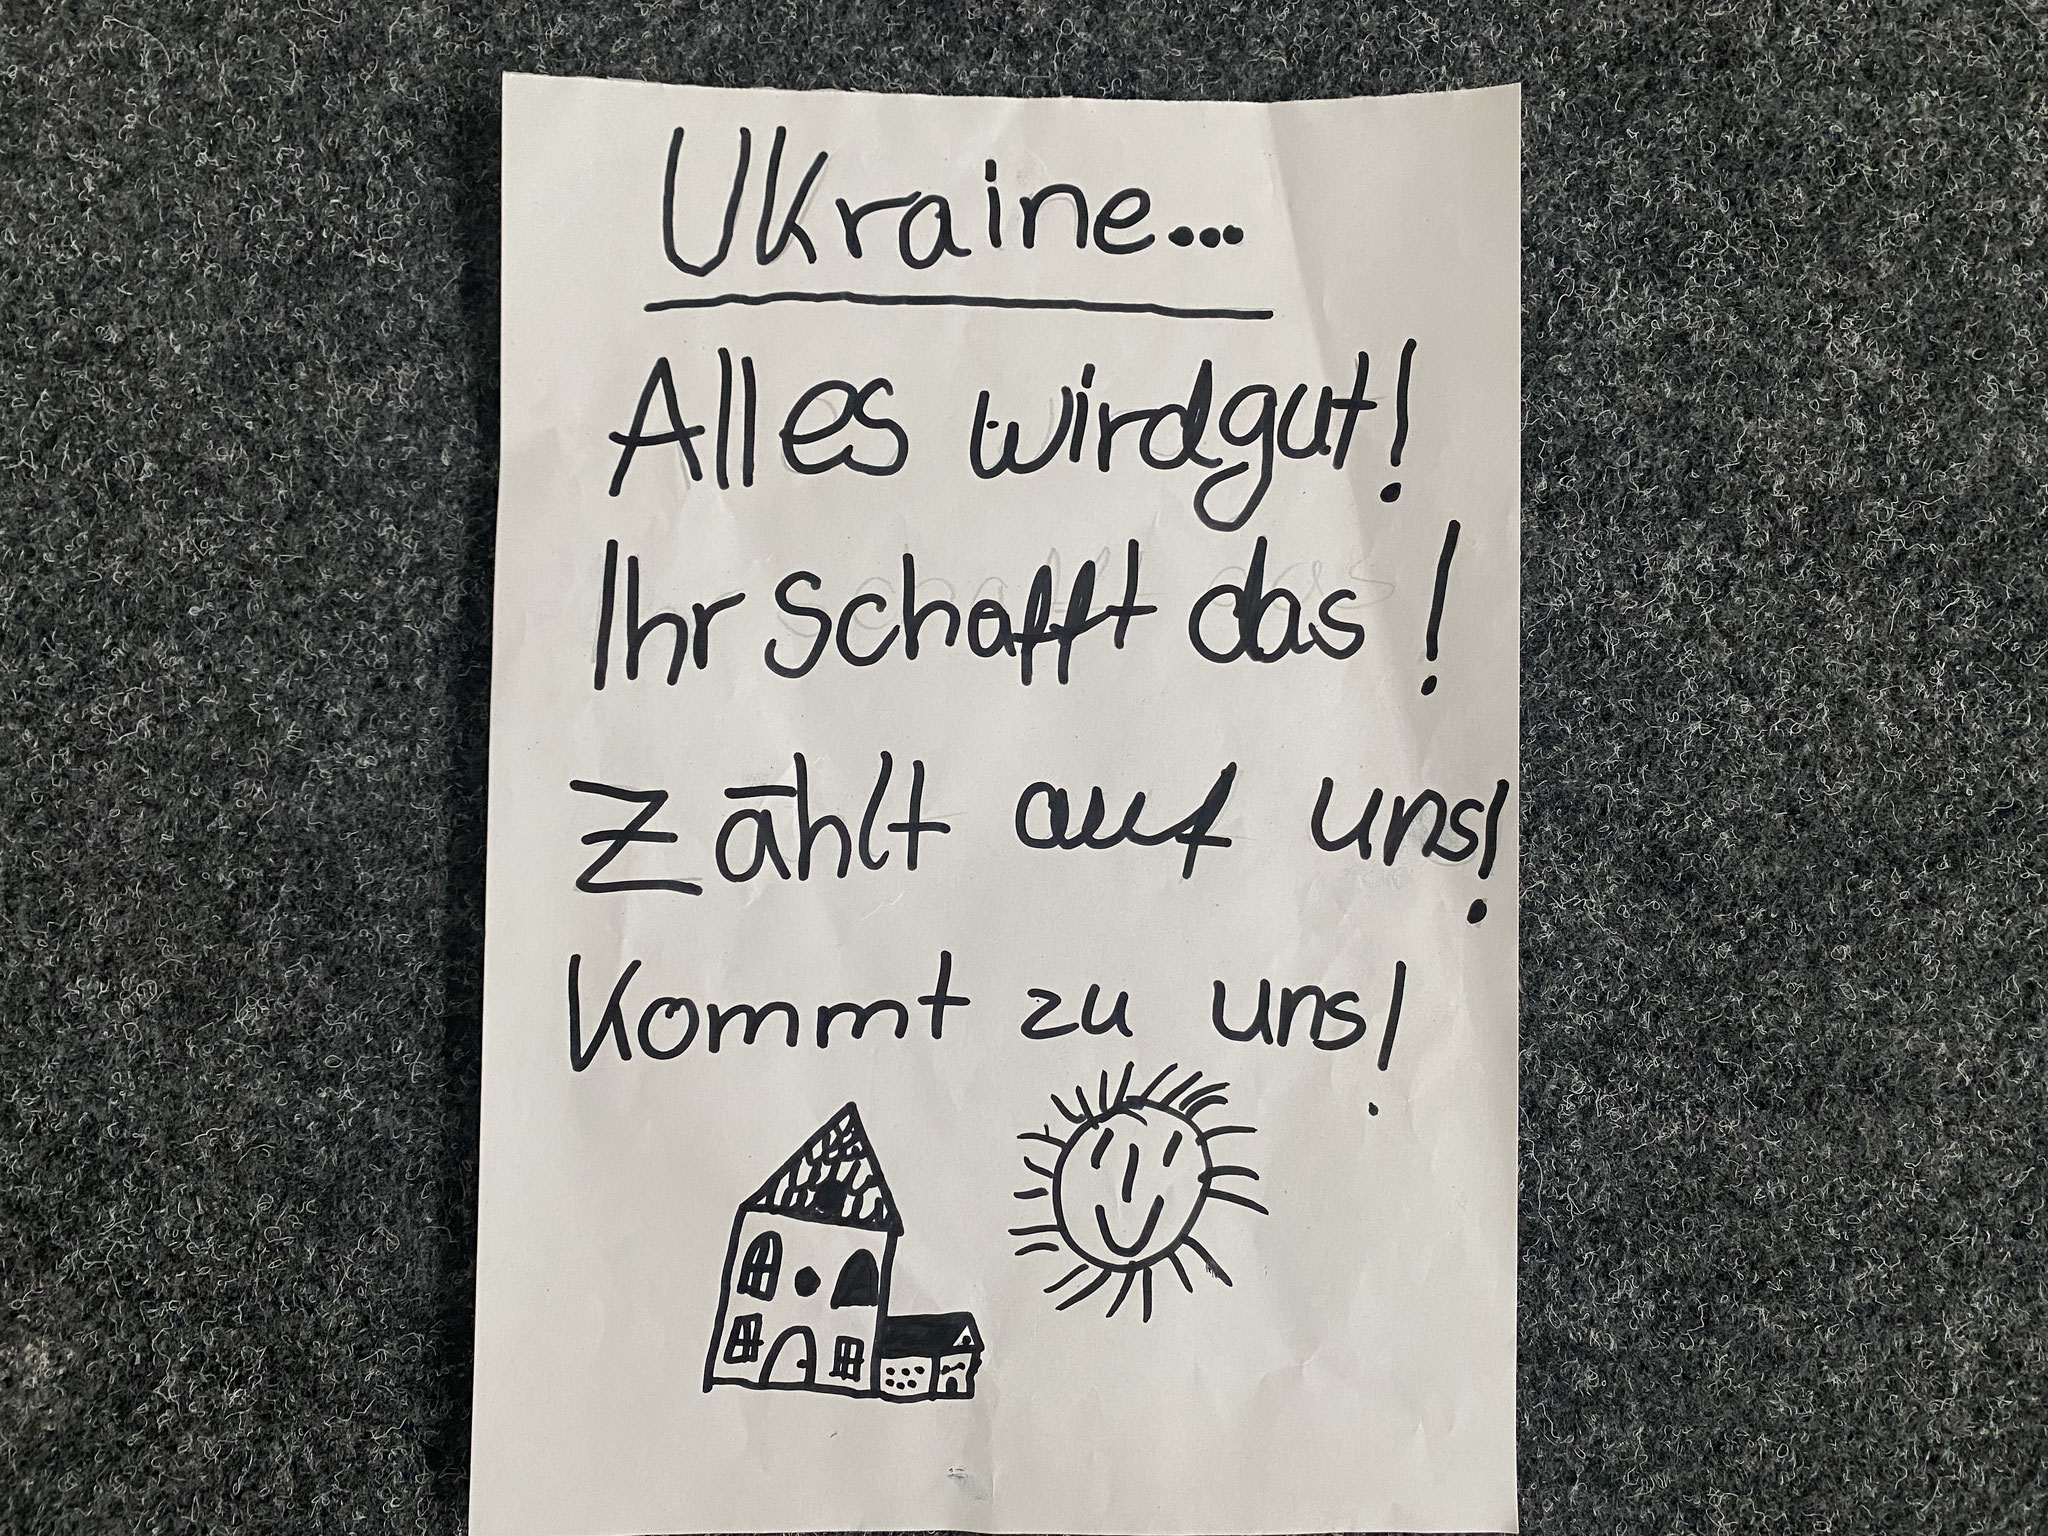 Ukraine...
Alles wird gut!
Ihr schafft das!
Zählt auf uns!
Kommt zu uns!